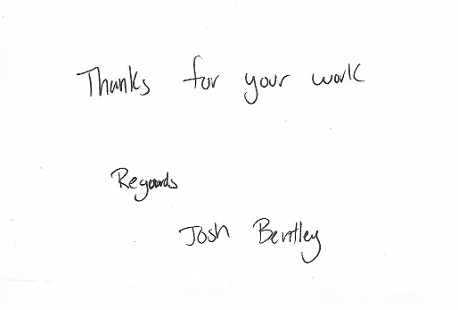 Thanks for your work
Regards
Josh Bentley